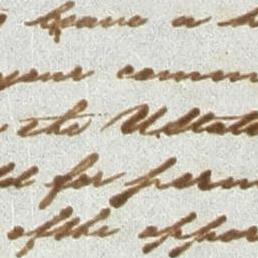 leave a
your comm
the U.State
for perm
of the appoi